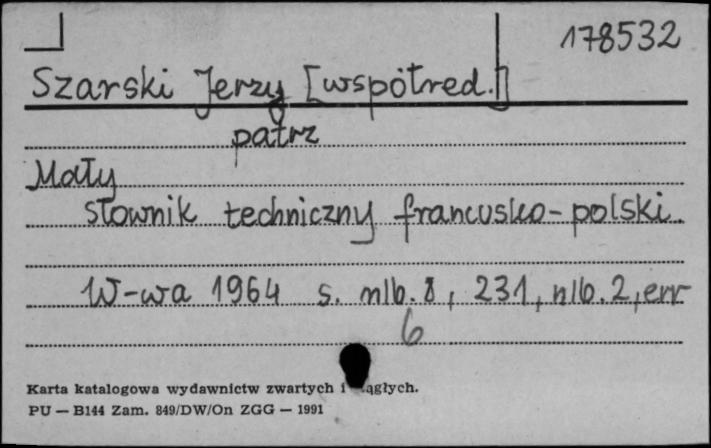 178532
Szarski Jerzy [współred.]
patrz
Mały
słownik techniczny francusko-polski.
W-wa 1964 s. nlb. 8, 231, nlb. 2, err
6
Karta katalogowa wydawnictw zwartych i ągłych.
PU — B144 Zam. 849/DW/On ZGG — 1991